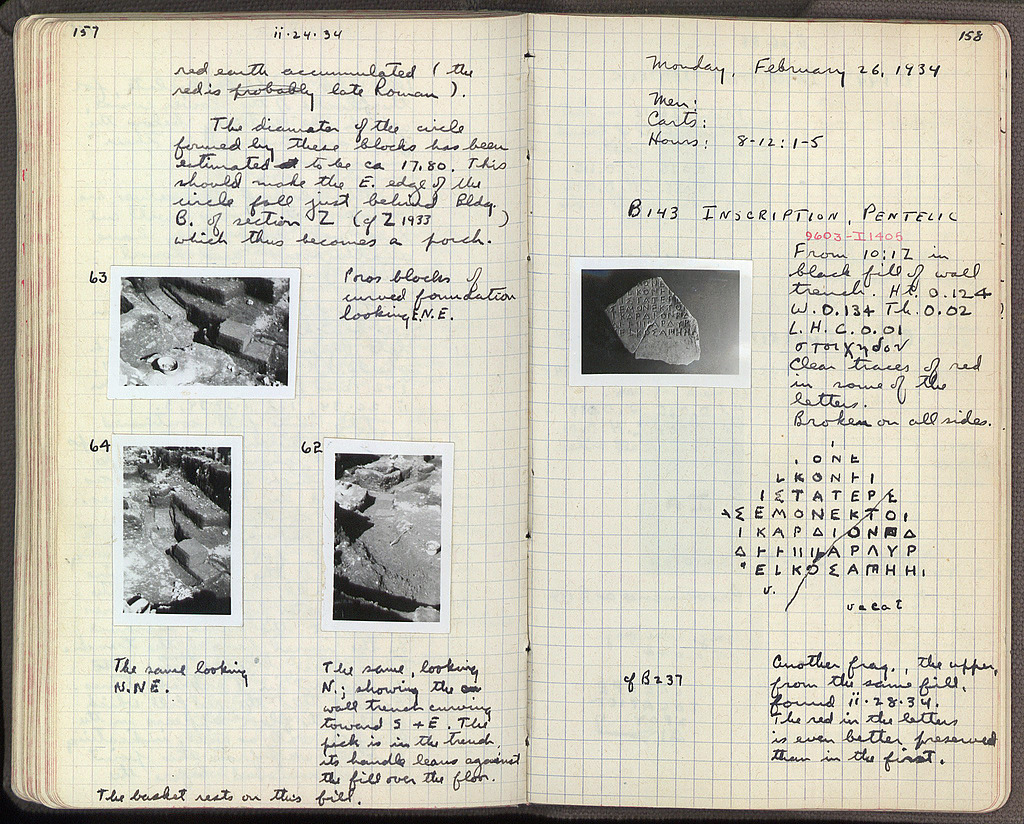 157
ii·24·34
red earth accumulated (the
red is probably late Roman ).
The diameter of the circle
formed by these blocks has been
estimated to be ca 17.80. This
should make the E. edge of the
circle fall just behind Bldg.
B. of section Z (cf Z 1933 )
which thus becomes a porch.
63
Poros blocks of
curved foundation
looking E.N.E.
64
62
The same looking
N.NE.
The same, looking
N.; showing the
wall trench curving
toward S + E. The
pick is in the trench,
its handle leans against
the fill over the floor.
The basket rests on this fill.
158
Monday, February 26, 1934
Men:
Carts:
Hours: 8-12: 1-5
B143 INSCRIPTION, PENTELIC
9603-I 1405
From 10:IZ in
black fill of wall
trench. Ht. 0.124
W. 0.134 Th. 0.02
L.H.C. 0.01
στοιχηδον
Clear traces of red
in some of the
letters.
Broken on all sides.
Ι Ο Ν Ε
Ι Σ Τ Α Τ Ε Ρ Ε
Σ Ε Μ Ο Ν Ε Κ Τ Ο Ι
Ι Κ Α Ρ Δ Ι Ο Ν
v.
vacat
cf B237
Another frag., the upper,
from the same fill,
found ii·28·34.
The red in the letters
is even better preserved
than in the first.